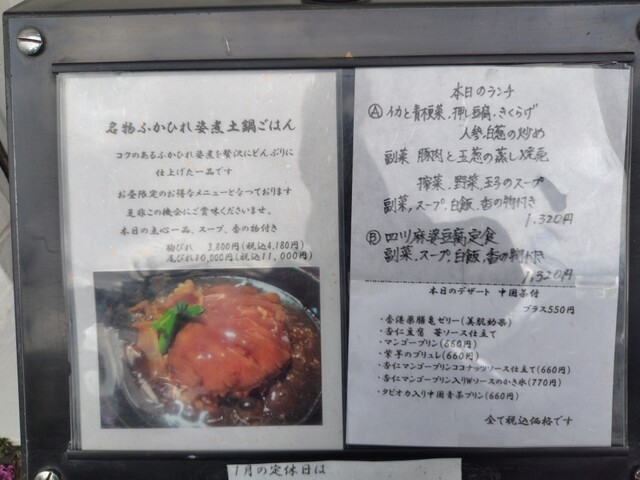 名物ふかひれ姿煮土鍋ごはん
コクのあるふかひれ姿煮を贅沢にどんぶりに
仕上げた一品です
お昼限定のお得なメニューとなっております
是非この機会にご賞味くださいませ。
本日の点心一品、スープ、香の物付き
胸びれ 3,800円(税込4,180円)
尾びれ10,000円(税込11,000円)
本日のランチ
Ⓐ イカと青梗菜、押し豆腐、きくらげ
人参、白葱の炒め
副菜 豚肉と玉葱の蒸し焼売
搾菜、野菜、玉子のスープ
副菜、スープ、白飯、香の物付き
1,320円
Ⓑ 四川麻婆豆腐定食
副菜、スープ、白飯、香の物付き
1,320円
本日のデザート 中国茶付
プラス550円
・香港薬膳亀ゼリー(美肌効果)
・杏仁豆腐 苺ソース仕立て
・マンゴープリン(660円)
・紫芋のブリュレ(660円)
・杏仁マンゴープリンココナッツソース仕立て(660円)
・杏仁マンゴープリン入りWソースのかき氷(770円)
・タピオカ入り中国青茶プリン(660円)
全て税込価格です
1月の定休日は